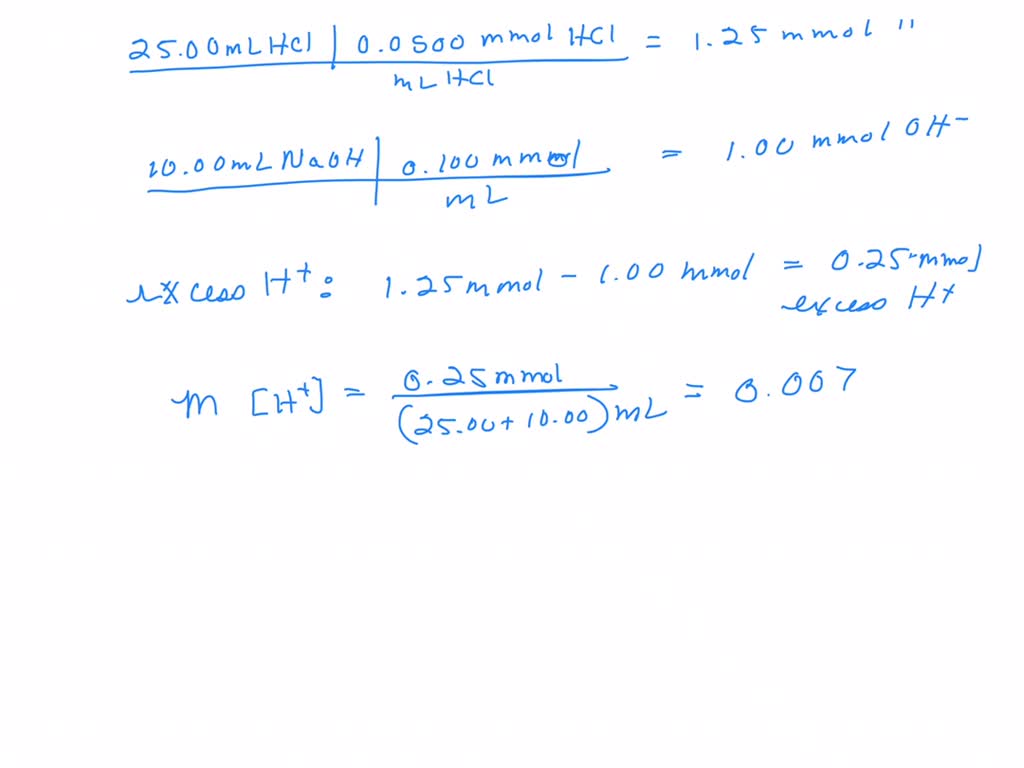 25.00mL HCl | 0.0500 mmol HCl = 1.25 mmol "
mL HCl
10.00mL NaOH | 0.100 mmmol = 1.00 mmol OH⁻
mL
excess H⁺: 1.25mmol - 1.00 mmol = 0.25 mmol
excess H⁺
M [H⁺] = 0.25mmol = 0.007
(25.00+10.00)mL